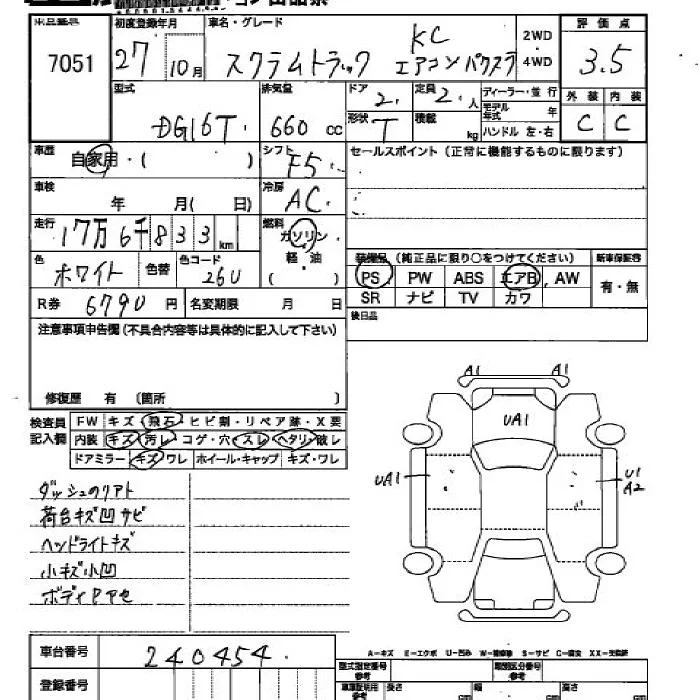 7051
初度登録年月
27 10月
車名・グレード
スクラムトラック KC エアコンパワステ
2WD
・4WD
評価点
3.5
型式
DG16T.
排気量
660 cc
ドア
2.
定員
2.人
形状
T
積載
kg
ディーラー・並行
モデル年式 年
ハンドル 左・右
外装 内装
C C
車歴
自家用・( )
シフト
F5
セールスポイント(正常に機能するものに限ります)
車検
年 月( 日)
冷房
AC.
走行
17万6千833km
燃料
ガソリン・
軽・油
( )
色
ホワイト
色替
色コード
26U
装備品 (純正品に限り○をつけてください)
新車保証書
PS PW ABS エアB AW
SR ナビ TV カワ
有・無
R券 6790 円
名変期限 月 日
後日品
注意事項申告欄(不具合内容等は具体的に記入して下さい)
修復歴 有 〔箇所 〕
検査員
記入欄
FW キズ・飛石・ヒビ割・リペア跡・X要
内装 キズ・汚レ・コゲ・穴・スレ・ヘタリ・破レ
ドアミラー キズ・ワレ ホイール・キャップ キズ・ワレ
A1 A1
UA1
UA1
U1
A2
ダッシュのリアト
荷台キズ凹サビ
ヘッドライトキズ
小キズ小凹
ボディPアセ
A-キズ E-エクボ U-凹み W-補修跡 S-サビ C-腐食 XX-交換済
車台番号
240454.
登録番号
型式指定番号
参考
類別区分番号
参考
車庫証明用
参考
長さ cm
幅 cm
高さ cm